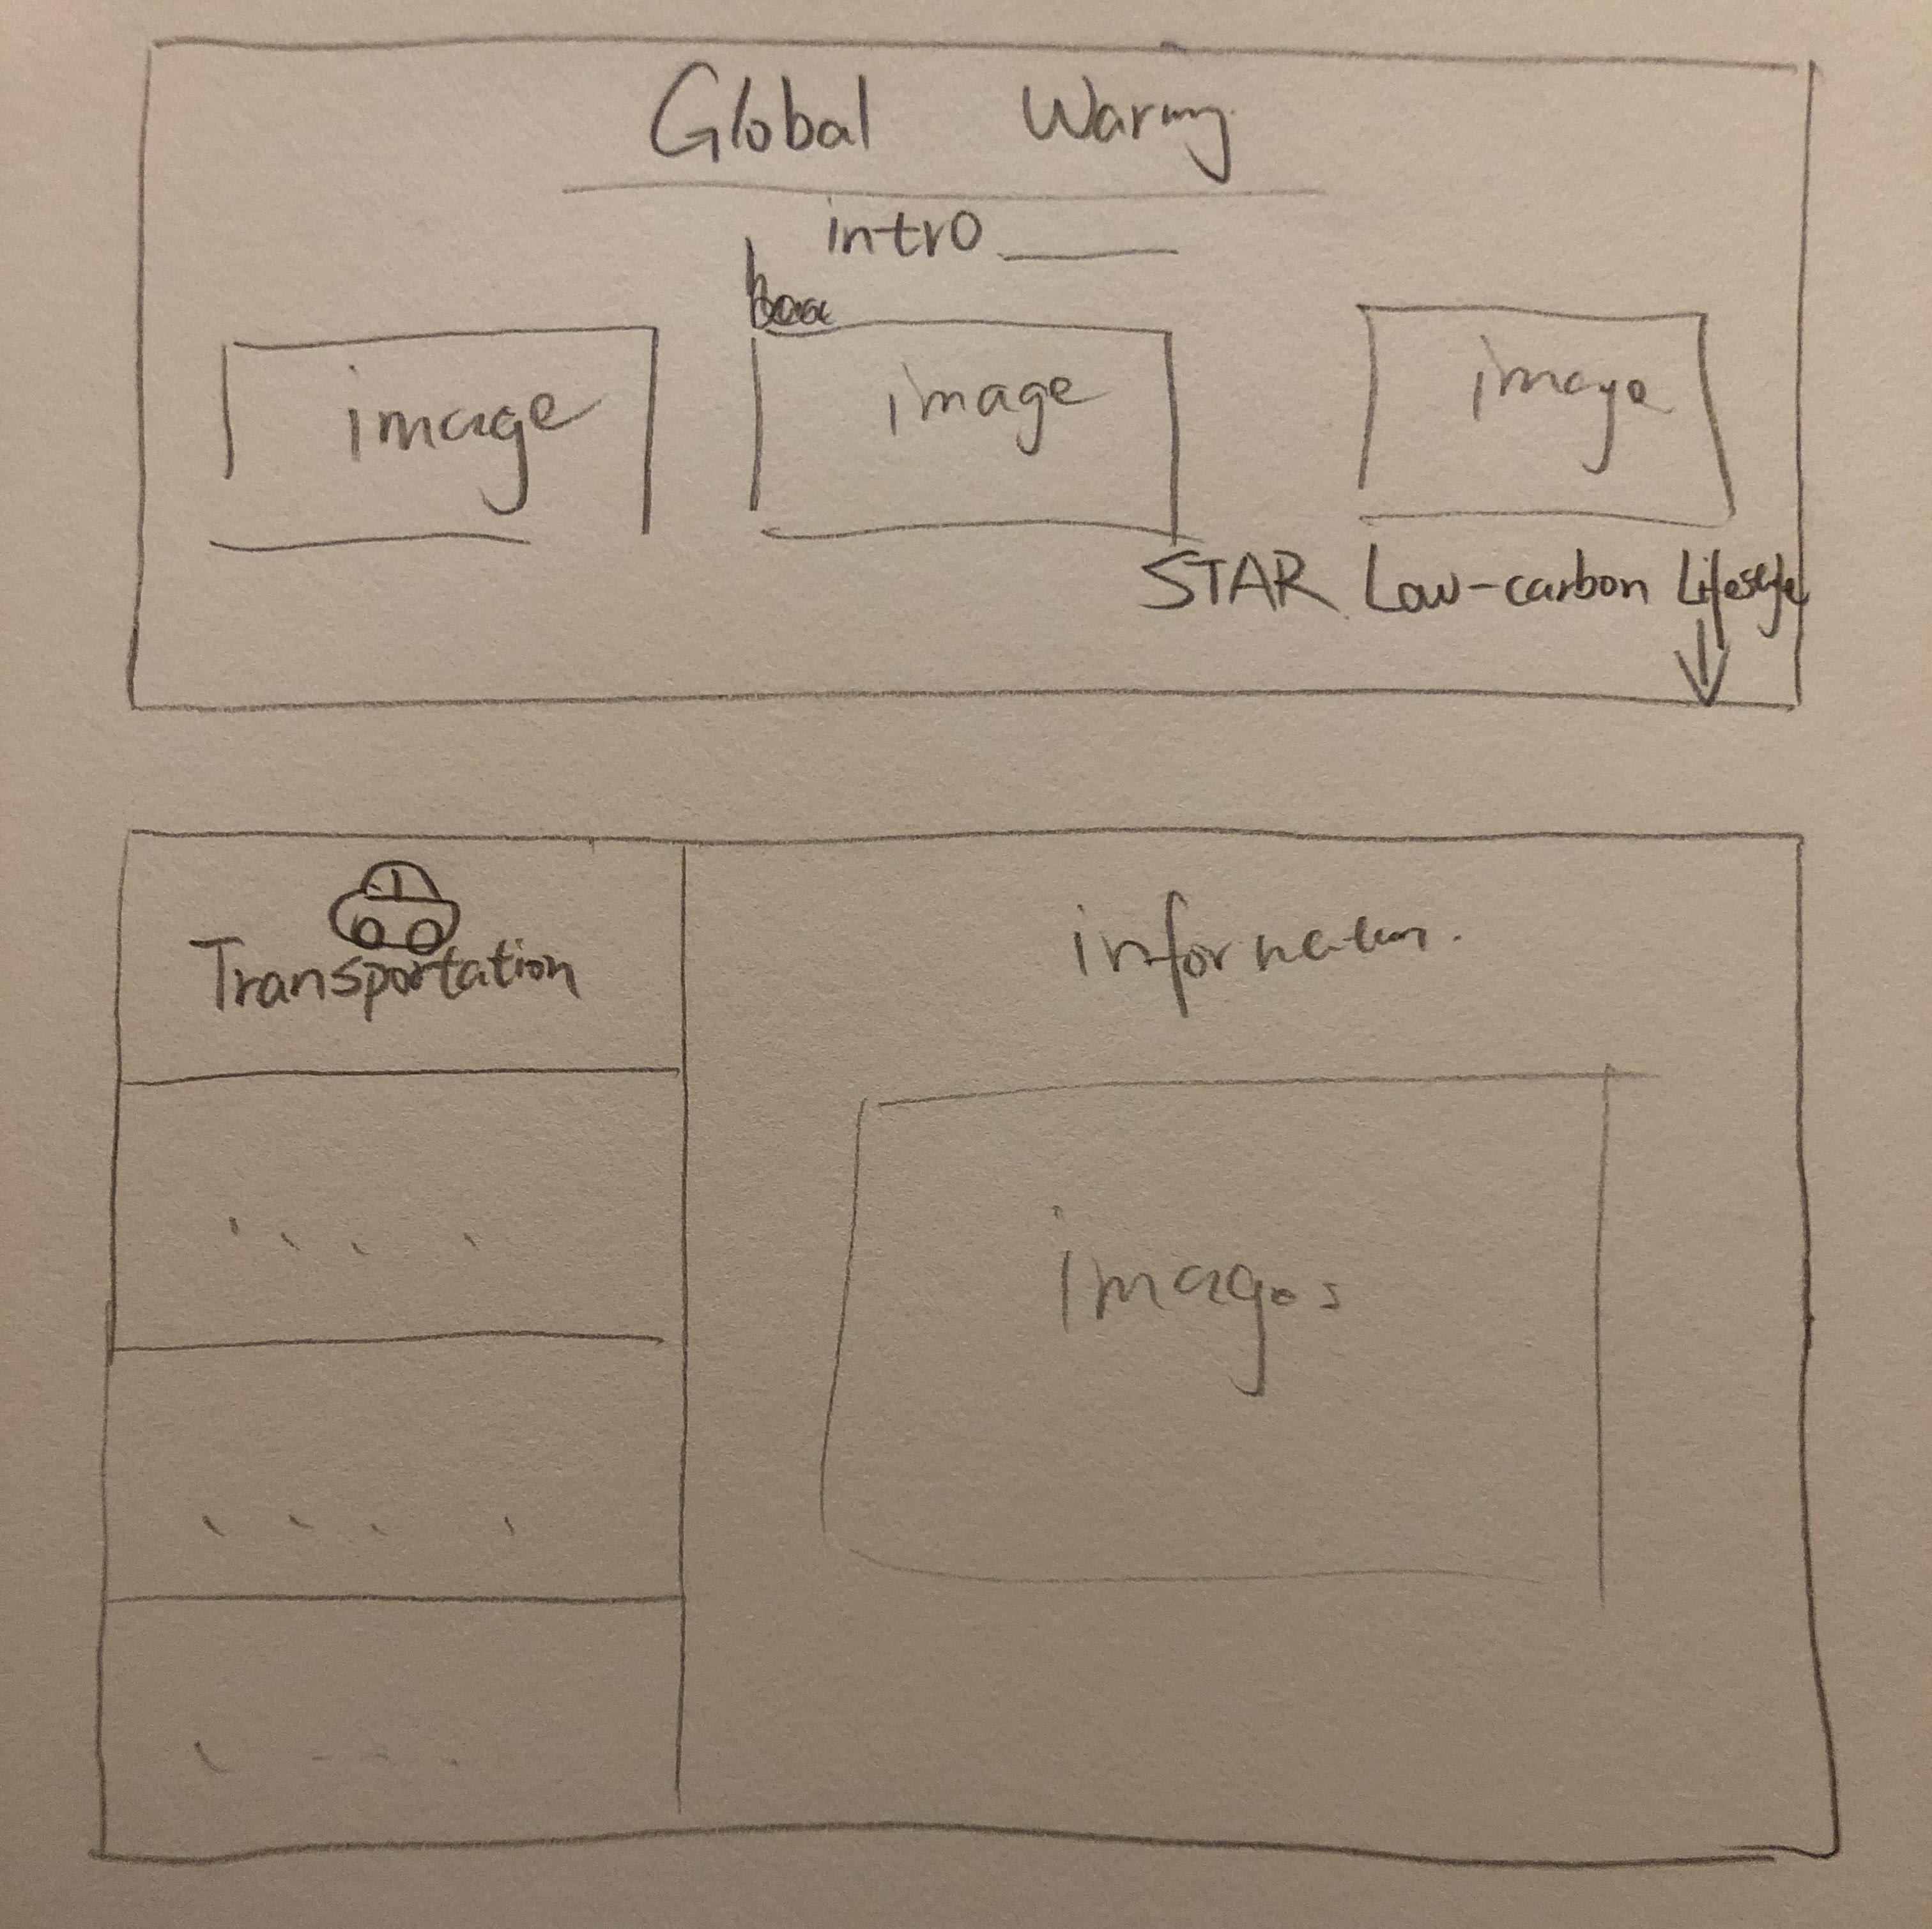 Global Warmng
intro
image
image
image
STAR Low-carbon Lifestyle
Transportation
information.
images